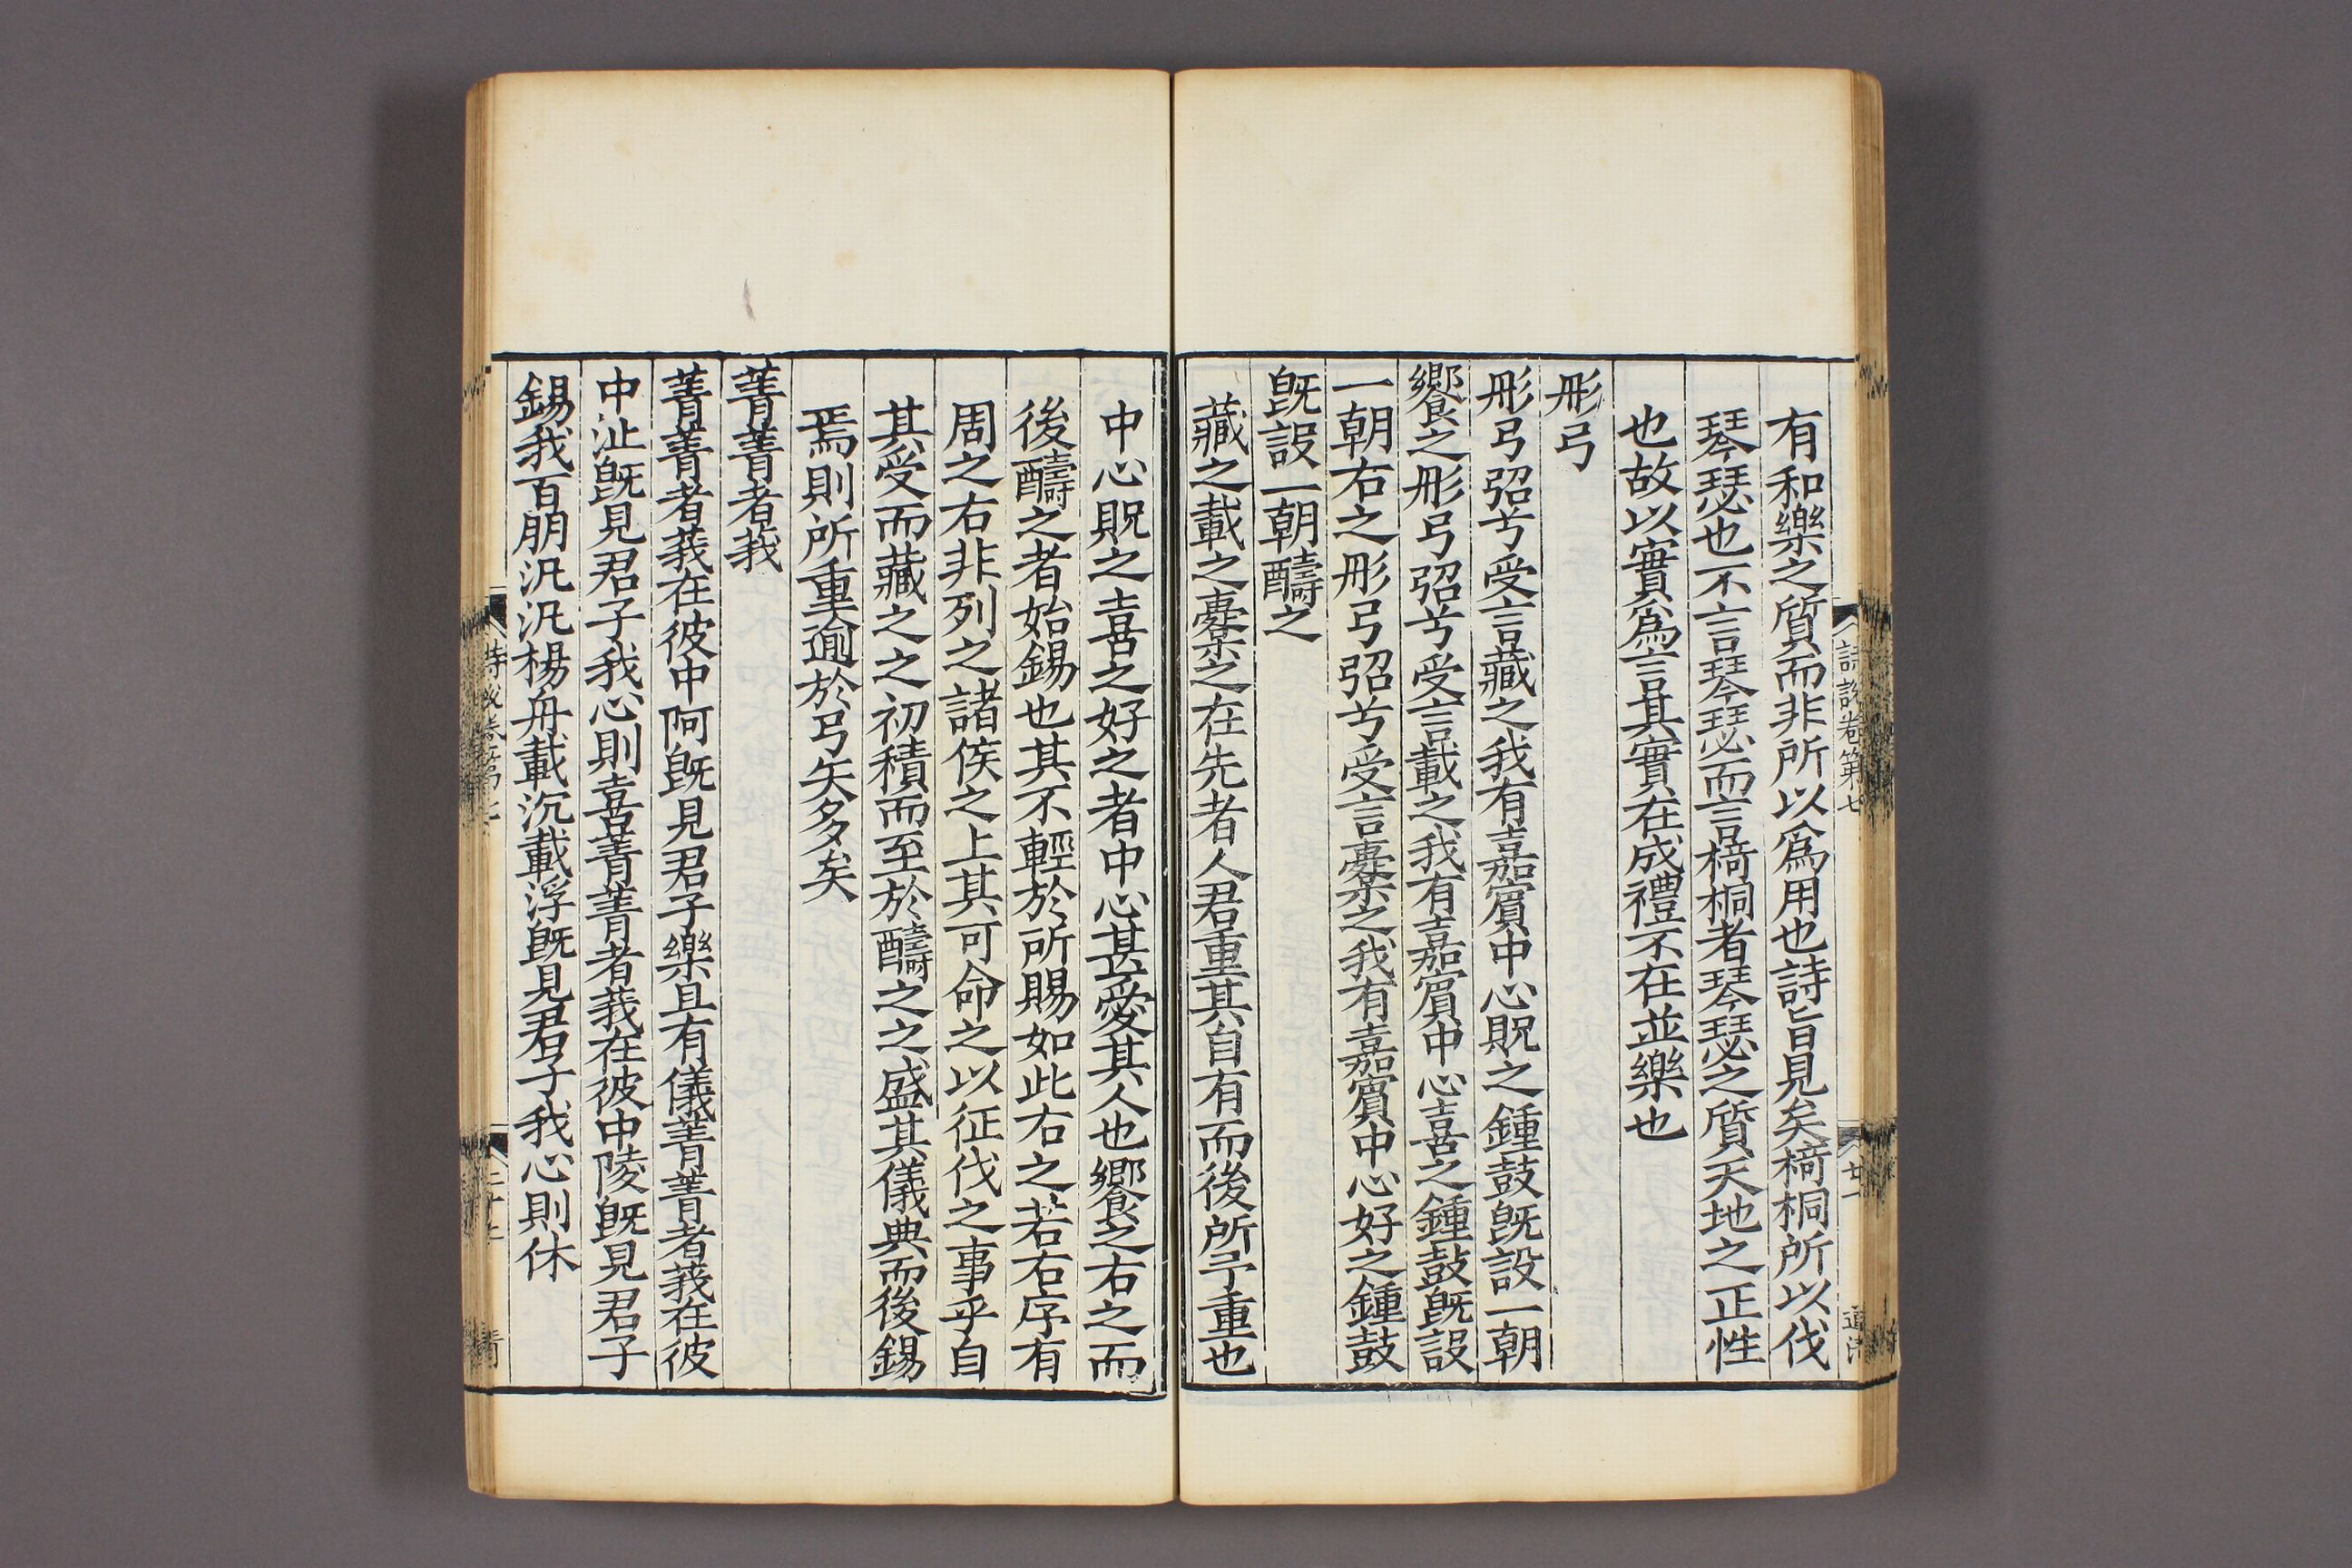 有和樂之質而非所以爲用也詩旨見矣椅桐所以伐
琴瑟也不言琴瑟而言椅桐者琴瑟之質天地之正性
也故以實爲言其實在成禮不在並樂也
彤弓
彤弓弨兮受言藏之我有嘉賔中心貺之鍾鼓旣設一朝
饗之彤弓弨兮受言載之我有嘉賔中心喜之鍾鼔旣設
一朝右之彤弓弨兮受言櫜之我有嘉賔中心好之鍾鼓
旣設一朝醻之
藏之載之櫜之在先者人君重其自有而後所予重也
詩說卷第七
廿一
中心貺之喜之好之者中心甚愛其人也饗之右之而
後醻之者始錫也其不輕於所賜如此右之若右序有
周之右非列之諸侯之上其可命之以征伐之事乎自
其受而藏之之初積而至於醻之之盛其儀典而後錫
焉則所重逾於弓矢多矣
菁菁者莪
菁菁者莪在彼中阿旣見君子樂且有儀菁菁者莪在彼
中沚旣見君子我心則喜菁菁者莪在彼中陵旣見君子
錫我百朋汎汎楊舟載沉載浮旣見君子我心則休